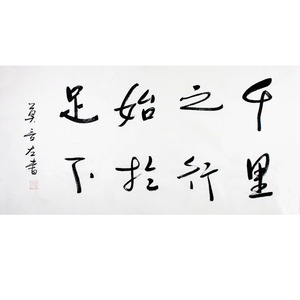 千里
之行
始於
足下
莫言左書